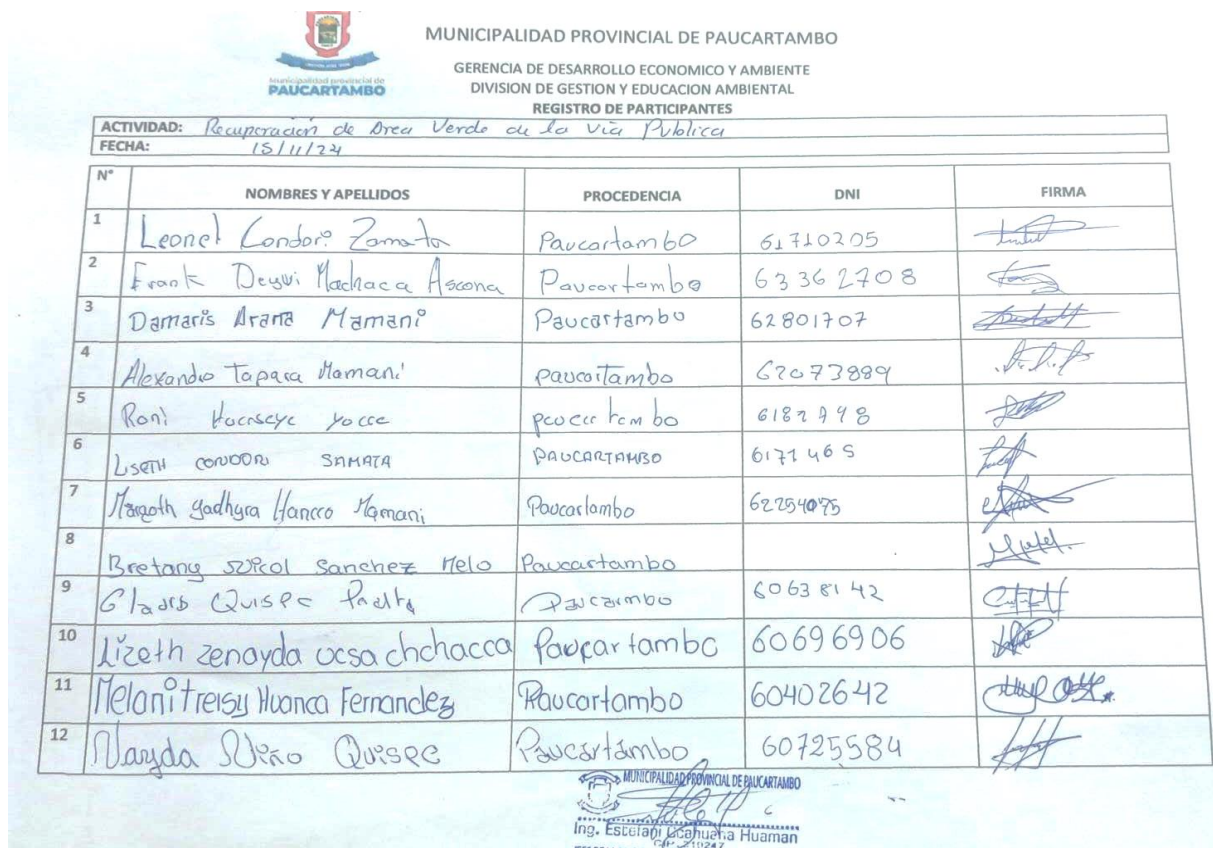 Municipalidad provincial de
PAUCARTAMBO
MUNICIPALIDAD PROVINCIAL DE PAUCARTAMBO
GERENCIA DE DESARROLLO ECONOMICO Y AMBIENTE
DIVISION DE GESTION Y EDUCACION AMBIENTAL
REGISTRO DE PARTICIPANTES
ACTIVIDAD: Recuperación de Area Verde de la Via Publica
FECHA: 15/11/24
N° NOMBRES Y APELLIDOS PROCEDENCIA DNI FIRMA
1 Leonel Condori Zamata Paucartambo 61710205
2 Frank Deywi Machaca Ascona Paucartambo 63362708
3 Damaris Arana Mamani Paucartambo 62801707
4 Alexandro Tapara Mamani Paucartambo 62073889
5 Roni paucartambo
6 LISETH CONDORI SAMATA PAUCARTAMBO 6171465
7 Margoth gadhyra Hancco Mamani Paucartambo 62254075
8 Bretany Sanchez Melo Paucartambo
9 Quispe Paucarmbo 60638142
10 Lizeth zenayda ocsa chchacca Paucartambo 60696906
11 Melani treisy Huanca Fernandez Paucartambo 60402642
12 Nayda Niño Quispe Paucartambo 60725584
MUNICIPALIDAD PROVINCIAL DE PAUCARTAMBO
Ing. Estefani Ccahuana Huaman